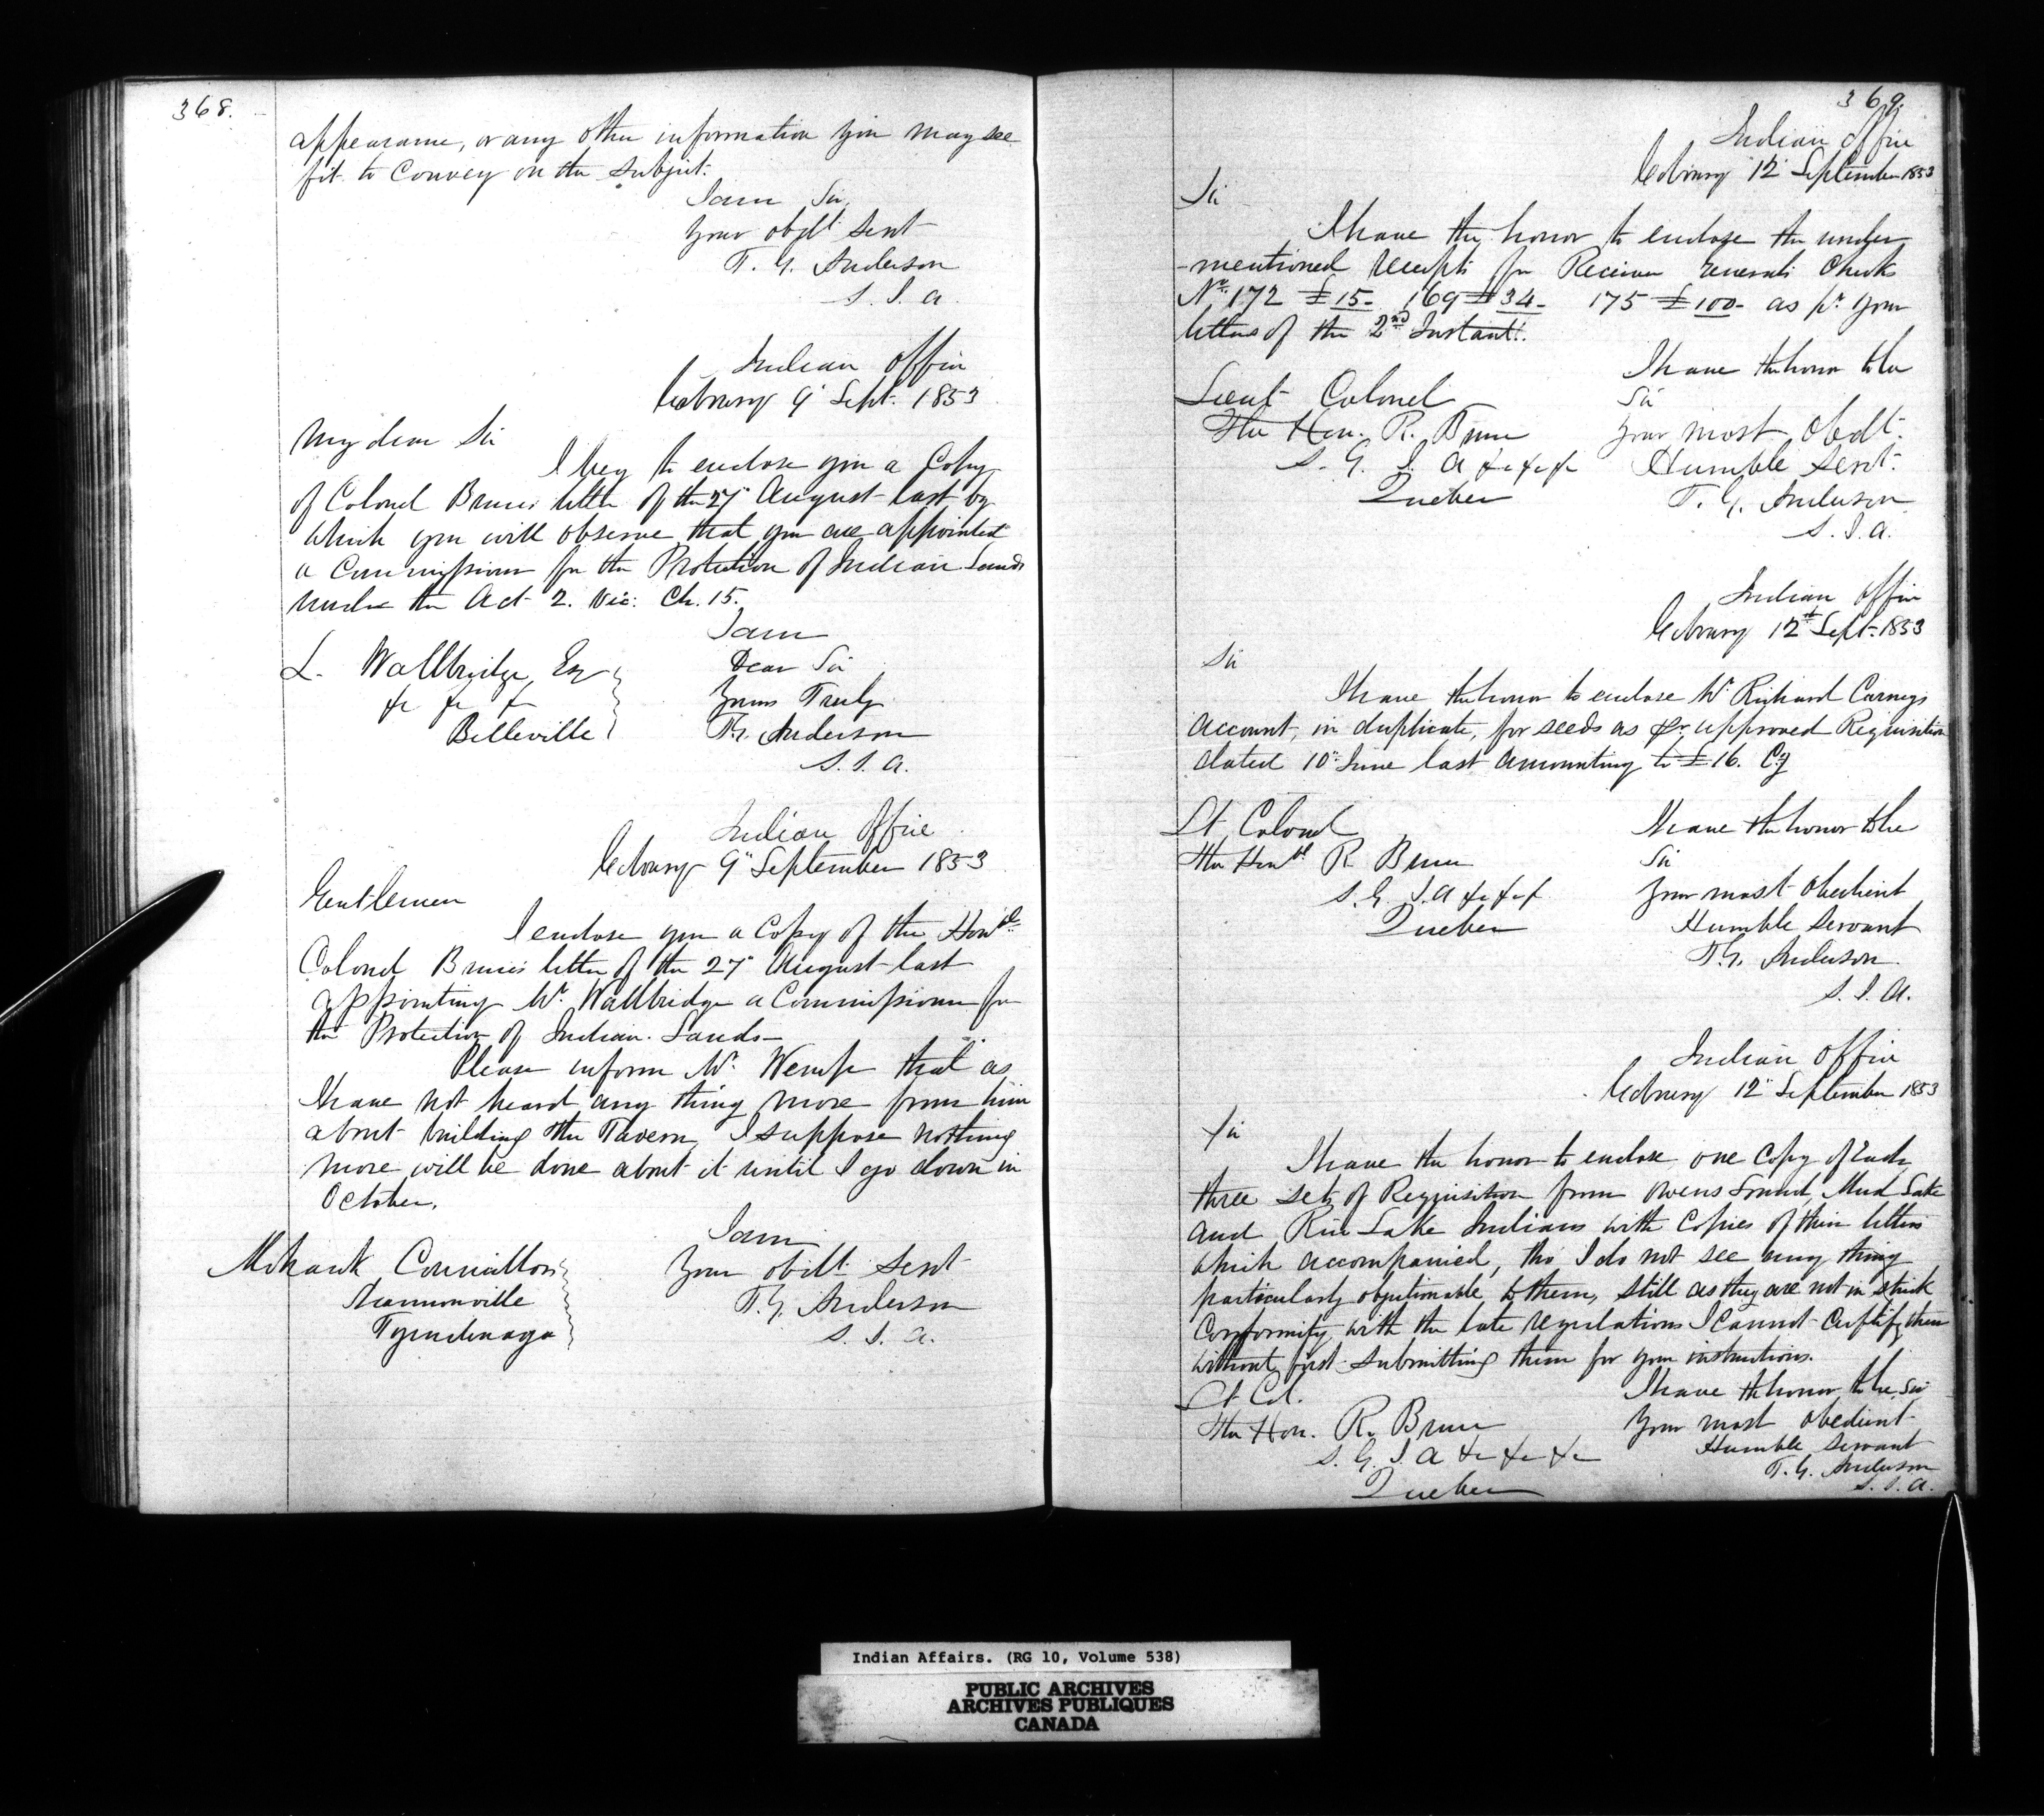 368.
appearance, or any other information you may see
fit to Convey on the subject.
I am Sir,
Your obdt Sert
T. G. Anderson
S. I. A.
Indian Office
Cobourg 9" Sept. 1853
My dear Sir
I beg to enclose you a Copy
of Colonel Bruces letter of the 27" August last by
which you will observe that you are appointed
a Commissioner for the Protection of Indian Lands
under the Act 2. Vic: Ch. 15.
I am
Dear Sir
Yours Truly
T. G. Anderson
S. I. A.
L. Wallbridge Esq
&c &c &c
Belleville
Indian Office
Cobourg 9" September 1853
Gentlemen
I enclose you a Copy of the Honble
Colonel Bruce's letter of the 27" August last
appointing Mr. Wallbridge a Commissioner for
the Protection of Indian Lands—
Please inform Mr. Wemp that as
I have not heard any thing more from him
about building the Tavern, I suppose nothing
more will be done about it until I go down in
October.
I am
Your obdt Sert
T. G. Anderson
S. I. A.
Mohawk Councillors
Shannonville
Tyendinaga
369.
Indian Office
Cobourg 12" September 1853
Sir
I have the honor to enclose the under
-mentioned receipts for Receiver Generals Checks
Nos. 172 £15- 169 £34- 175 £100- as pr. your
letters of the 2nd Instant.
I have the honor to be
Sir
Your most Obedt.
Humble Sert.
T. G. Anderson
S. I. A.
Lieut Colonel
The Hon. R. Bruce
S. G. I. A &c &c &c
Quebec
Indian Office
Cobourg 12th Sept. 1853
Sir
I have the honor to enclose Mr Richard Carneys
account, in duplicate, for seeds as pr. approved Requisition
dated 10" June last amounting to £16. Cy
I have the honor to be
Sir
Your most obedient
Humble Servant
T. G. Anderson
S. I. A.
Lt Colonel
The Honble R Bruce
S. G. I. A &c &c &c
Quebec
Indian Office
Cobourg 12" September 1853
Sir
I have the honor to enclose one Copy of Each
three sets of Requisition from Owens Sound, Mud Lake
and Rice Lake Indians with Copies of their letters
which accompanied, tho I do not see any thing
particularly objectionable to them, still as they are not in strict
Conformity with the late regulations I Cannot Certify them
without first submitting them for your instructions.
I have the honor to be, Sir
Your most obedient
Humble Servant
T. G. Anderson
S. I. A.
Lt Col.
The Hon. R. Bruce
S. G. I. A &c &c &c
Quebec
Indian Affairs. (RG 10, Volume 538)
PUBLIC ARCHIVES
ARCHIVES PUBLIQUES
CANADA